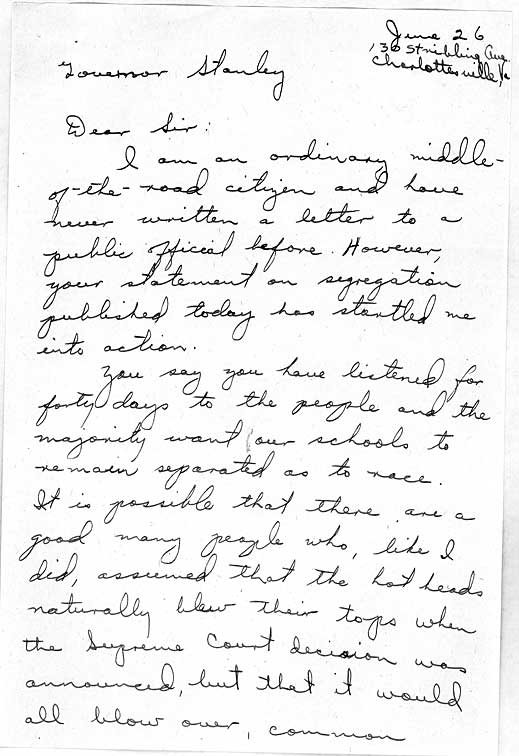 June 26
130 Stribling Ave.
Charlottesville, Va
Governor Stanley
Dear Sir:
I am an ordinary middle-
of-the-road citizen and have
never written a letter to a
public official before. However,
your statement on segregation
published today has startled me
into action.
You say you have listened for
forty days to the people and the
majority want our schools to
remain separated as to race.
It is possible that there are a
good many people who, like I
did, assumed that the hot heads
naturally blew their tops when
the Supreme Court decision was
announced, but that it would
all blow over, common